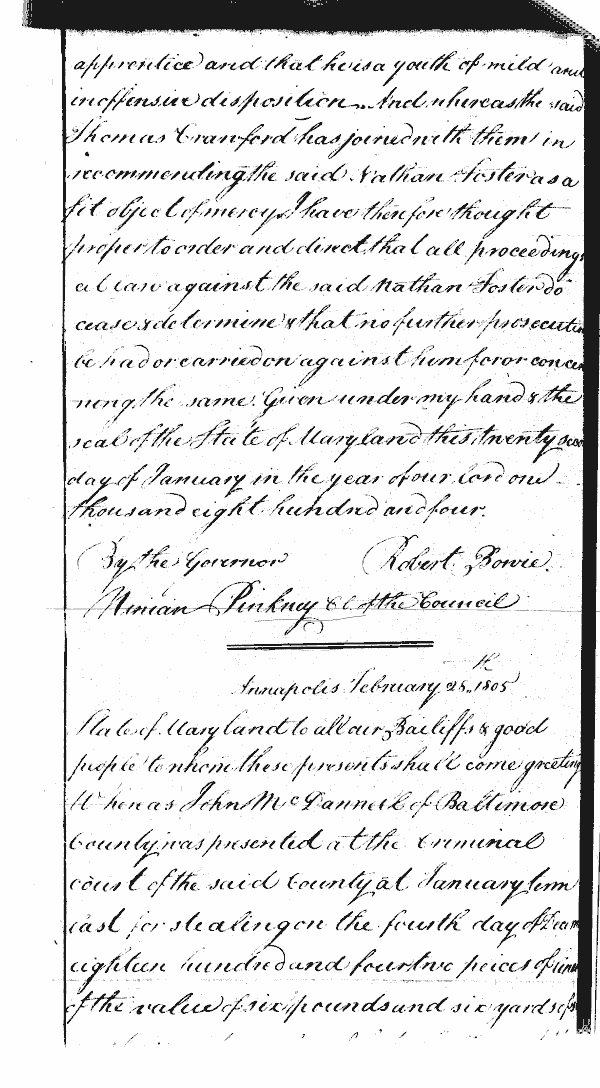 apprentice and that he is a youth of mild and
inoffensive disposition. And whereas the said
Thomas Cranford has joined with them in
recommending the said Nathan Foster as a
fit object of mercy I have therefore thought
proper to order and direct that all proceedings
at law against the said Nathan Foster do
cease & determine & that no further prosecution
be had or carried on against him for or concer
ning the same. Given under my hand & the
seal of the State of Maryland this twenty
day of January in the year of our lord one
thousand eight hundred and four.
By the Governor Robert Bowie.
Ninian Pinkney Cl. of the Council
Annapolis February 28th 1805
State of Maryland to all our Bailiffs & good
people to whom these presents shall come greeting
Whereas John McDannell of Baltimore
County was presented at the Criminal
court of the said County at January term
last for stealing on the fourth day of
eighteen hundred and four two peices of
of the value of six pounds and six yards of